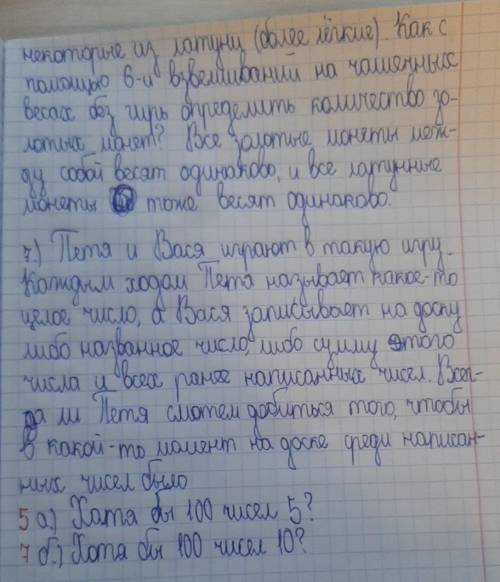 некоторые из латуни (более лёгкие). Как с
помощью 6-и взвешиваний на чашечных
весах без гирь определить количество зо-
лотых монет? Все золотые монеты меж-
ду собой весят одинаково, и все латунные
монеты тоже весят одинаково.
7.) Петя и Вася играют в такую игру.
Каждым ходом Петя называет какое-то
целое число, а Вася записывает на доску
либо названное число, либо сумму этого
числа и всех ранее написанных чисел. Всег-
да ли Петя сможет добиться того, чтобы
в какой-то момент на доске среди написан-
ных чисел было
5 а.) Хотя бы 100 чисел 5?
7 б.) Хотя бы 100 чисел 10?